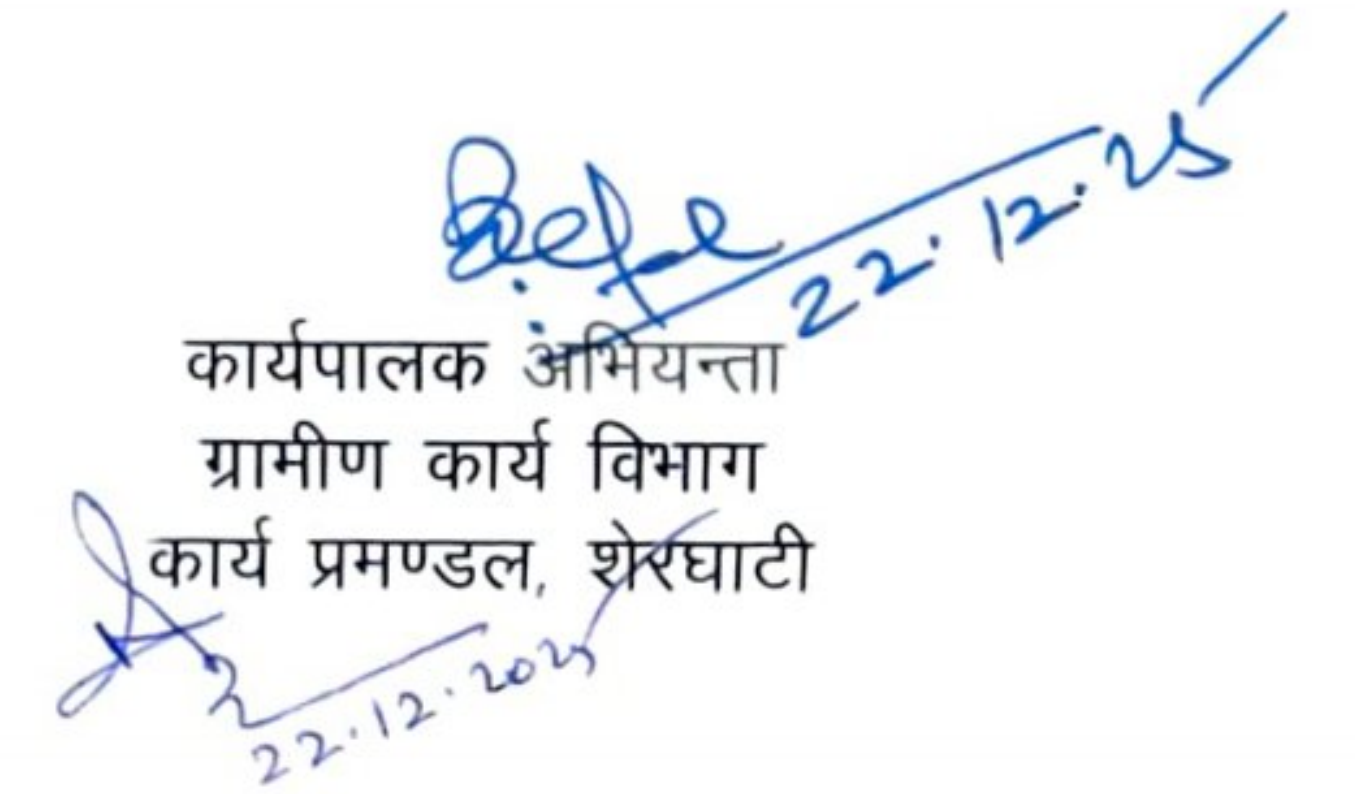 22.12.25
कार्यपालक अभियन्ता
ग्रामीण कार्य विभाग
कार्य प्रमण्डल, शेरघाटी
22.12.2025